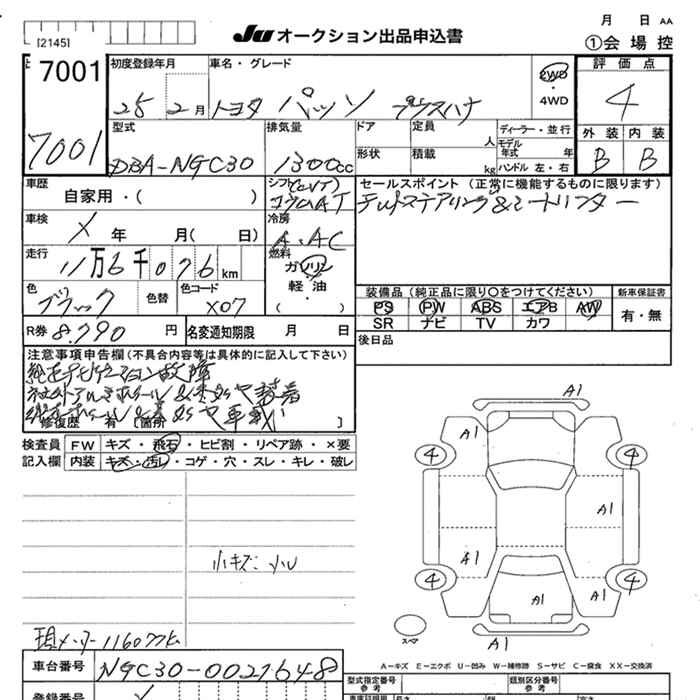 月 日 AA
[2145]
Ju オークション出品申込書
①会場控
7001
初度登録年月
車名・グレード
2WD
・
4WD
評価点
25 2月
トヨタ パッソ プラスハナ
4
7001
型式
排気量
ドア
定員
人
ディーラー・並行
外装
内装
モデル年式
年
形状
積載
kg
ハンドル 左・右
DBA-NGC30
1300cc
B
B
車歴
自家用・( )
シフト(CVT)
コラムAT
セールスポイント (正常に機能するものに限ります)
車検
X 年 月( 日)
冷房
A.AC
走行
11万6千076km
燃料
ガソリン
軽・油
( )
装備品 (純正品に限り○をつけてください)
新車保証書
色
ブラック
色替
色コード
X07
PS PW ABS エアB AW
SR ナビ TV カワ
有・無
R券
8.790円
名変通知期限 月 日
後日品
注意事項申告欄(不具合内容等は具体的に記入して下さい)
純正ナビゲーション故障
修復歴 有 [箇所 ]
検査員
記入欄
FW
キズ・飛石・ヒビ割・リペア跡・×要
内装
キズ・汚レ・コゲ・穴・スレ・キレ・破レ
A1
A1
4
4
A1
小キズ:小
A1
4
4
A1
A1
スペア
A1
現メーター116077k
A-キズ E-エクボ U-凹み W-補修跡 S-サビ C-腐食 XX-交換済
車台番号
NGC30-0021648
型式指定番号
参考
類別区分番号
参考
登録番号
長さ
幅
高さ